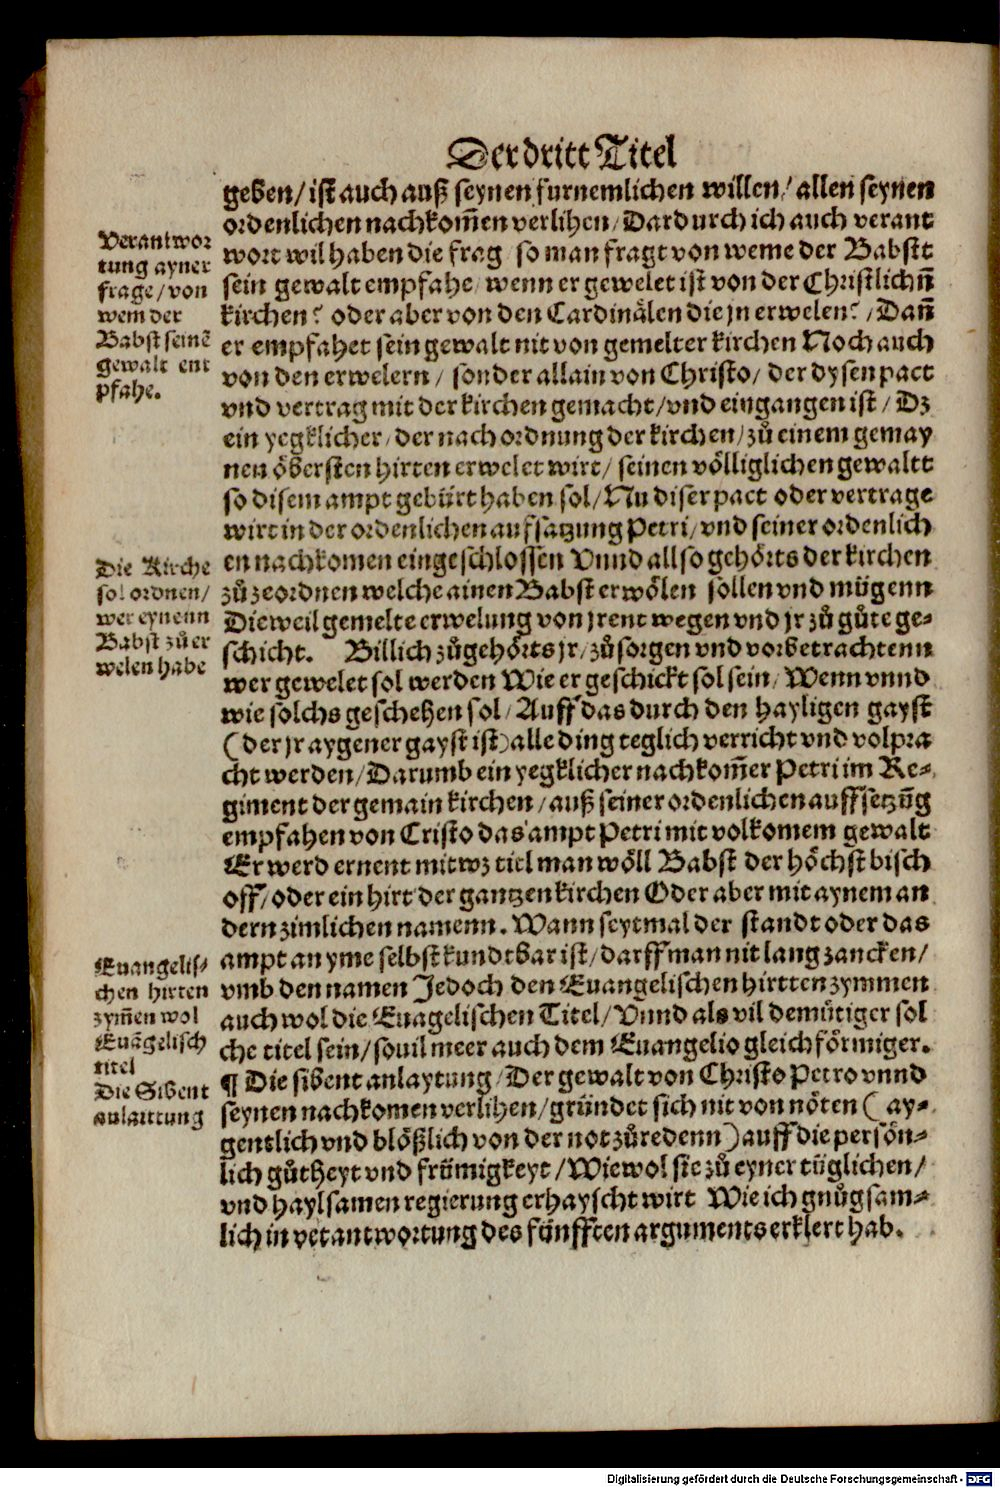 Der dritt Titel
geben/ ist auch auß seynen furnemlichen willen/ allen seynen
ordenlichen nachkom̄en verlihen/ Dardurch ich auch verant
wort wil haben die frag so man fragt von weme der Babstt
sein gewalt empfahe/ wenn er gewelet ist von der Christlichn̄
kirchen? oder aber von den Cardinälen die jn erwelen?/ Dan̄
er empfahet sein gewalt nit von gemelter kirchen Noch auch
von den erwelern/ sonder allain von Christo/ der dysen pact
vnd vertrag mit der kirchen gemacht/ vnd eingangen ist/ Dz
ein yegklicher/ der nach ordnung der kirchen/ zů einem gemay
nen öbersten hirten erwelet wirt/ seinen völliglichen gewaltt
so disem ampt gebürt haben sol/ Nu diser pact oder vertrage
wirt in der ordenlichen aufsatzung Petri/ vnd seiner ordenlich
en nachkomen eingeschlossen Vnnd allso gehörts der kirchen
zů zeordnen welche ainen Babst erwölen sollen vnd mügenn
Dieweil gemelte erwelung von jrent wegen vnd jr zů gůte ge-
schicht. Billich zůgehörts jr/ zů sorgen vnd vorbetrachtenn
wer gewelet sol werden Wie er geschickt sol sein/ Wenn vnnd
wie solchs geschehen sol/ Auff das durch den hayligen gayst
(der jr aygener gayst ist) alle ding teglich verricht vnd volpra
cht werden/ Darumb ein yegklicher nachkom̄er Petri im Re-
giment der gemain kirchen/ auß seiner ordenlichen auffsetzūg
empfahen von Cristo das ampt Petri mit volkomem gewalt
Er werd ernent mit wz titl man wöll Babst der höchst bisch
off/ oder ein hirt der gantzen kirchen Oder aber mit aynem an
dern zimlichen namenn. Wann seytmal der standt oder das
ampt an yme selbst kundtbar ist/ darff man nit lang zancken/
vmb den namen Jedoch den Euangelischen hirtten zymmen
auch wol die Euagelischen Titel/ Vnnd als vil demütiger sol
che titel sein/ souil meer auch dem Euangelio gleichförmiger.
¶ Die sibent anlaytung/ Der gewalt von Christo Petro vnnd
seynen nachkomen verlihen/ gründet sich nit von nöten ( ay-
gentlich vnd blößlich von der not zůredenn) auff die persön-
lich gůtheyt vnd frümigkeyt/ Wiewol sie zů eyner tüglichen/
vnd haylsamen regierung erhayscht wirt Wie ich gnůgsam-
lich in verantwortung des fünfften arguments erklert hab.
Verantwor
tung ayner
frage/ von
wem der
Babst seinē
gewalt ent
pfahe.
Die Kirche
sol ordnen/
wer eynenn
Babst zů er
welen habe
Euangelis-
chen hirten
zym̄en wol
Euāgelisch
titel
Die Sibent
anlaittung
Digitalisierung gefördert durch die Deutsche Forschungsgemeinschaft - DFG